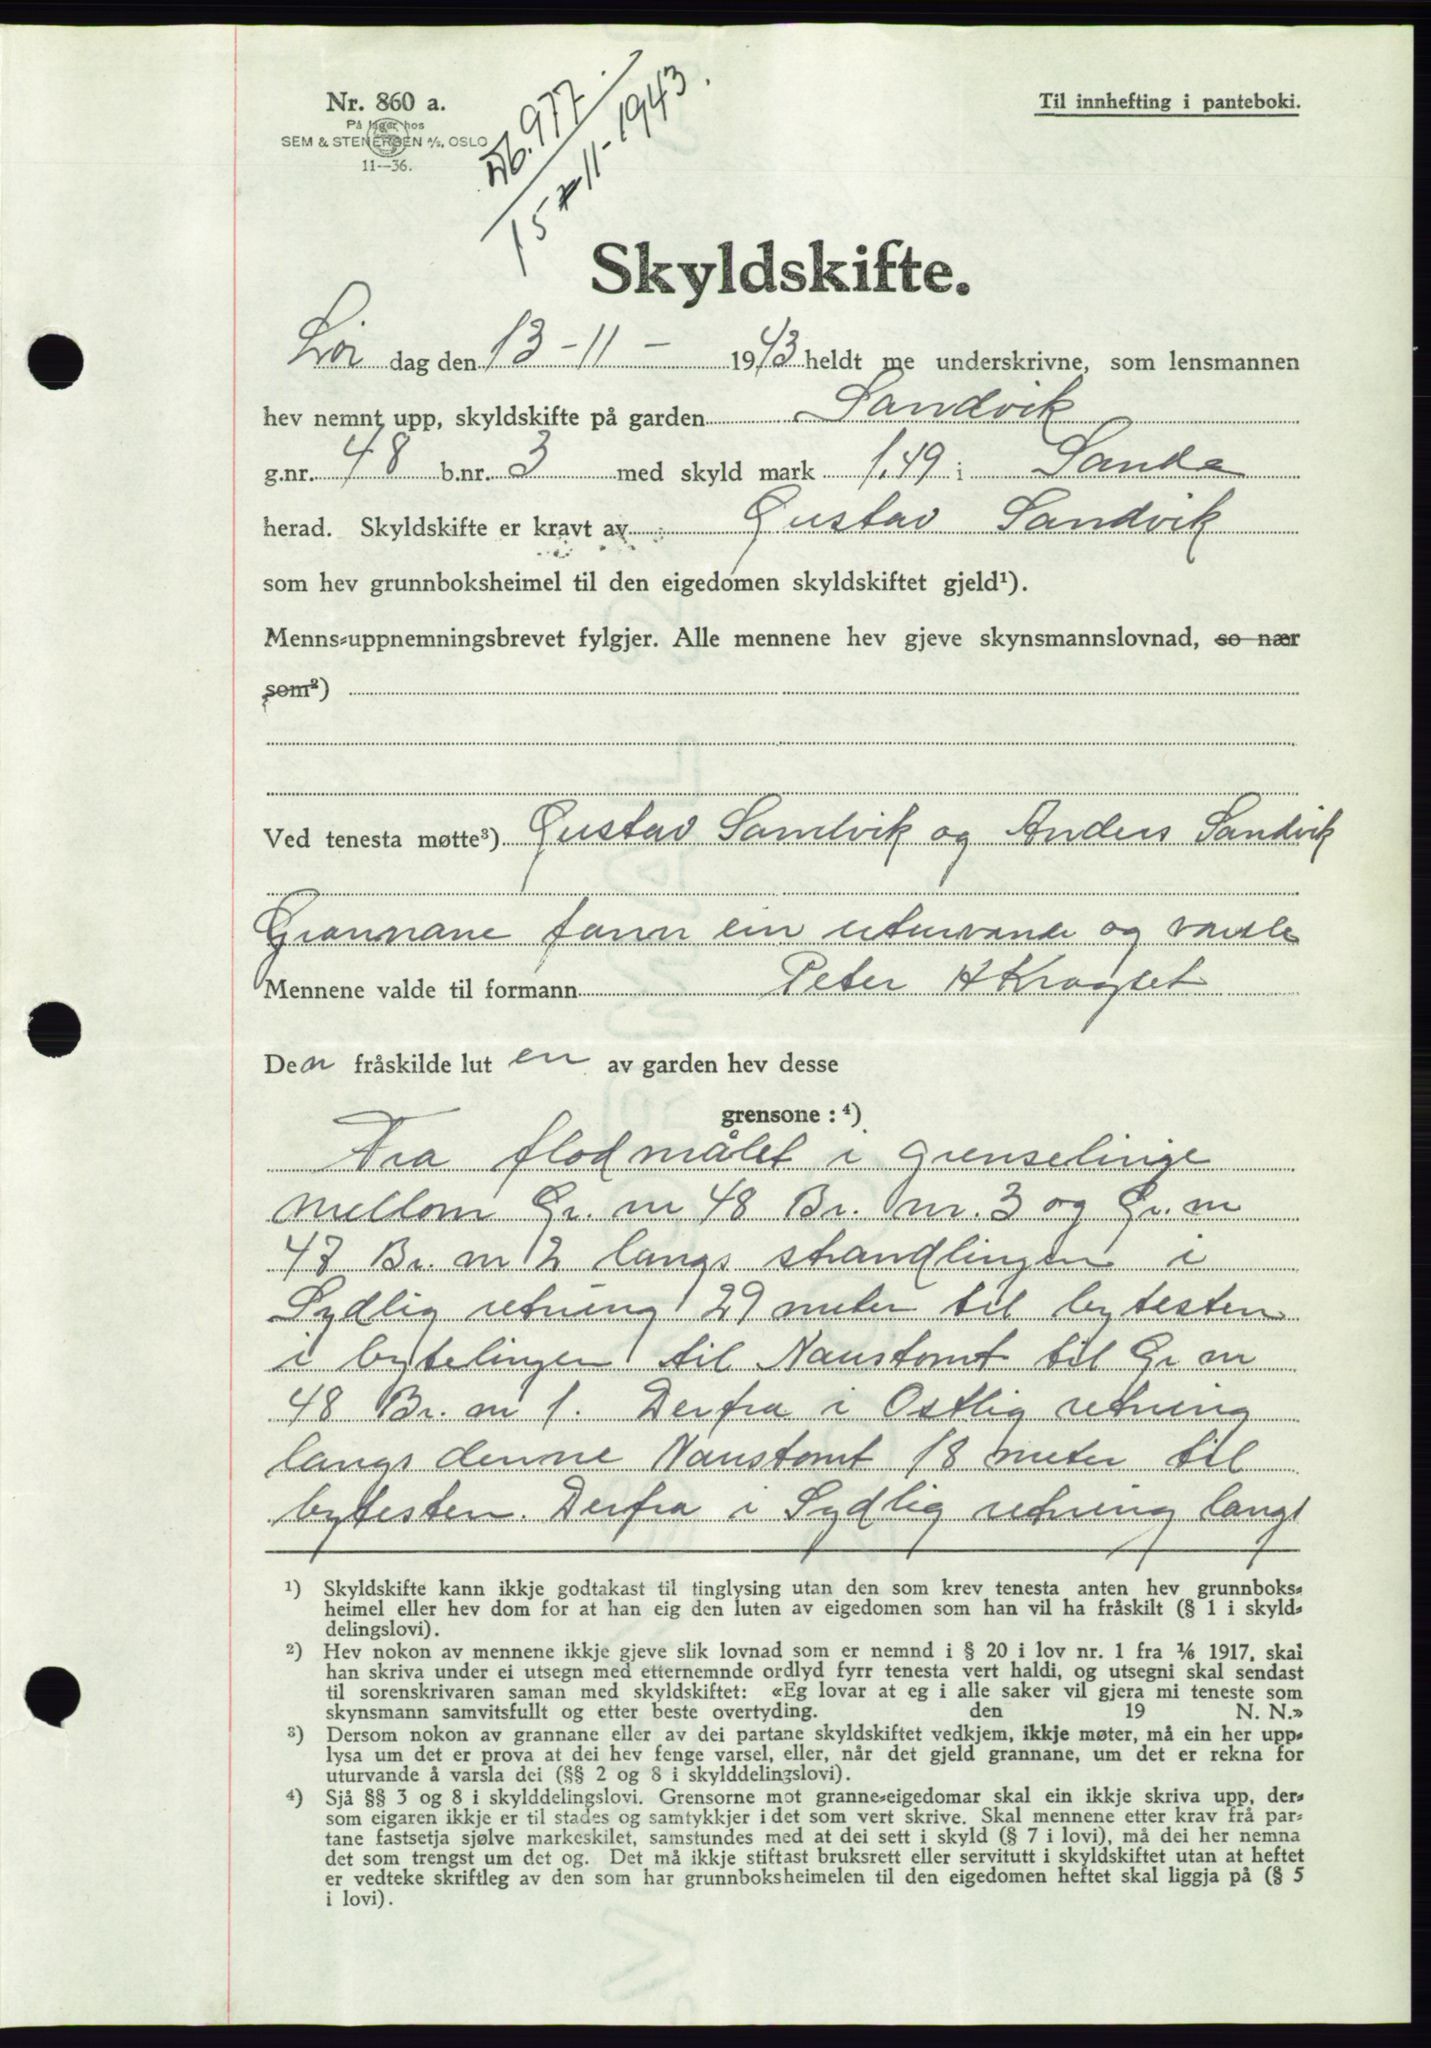 Nr. 860 a.
På lager hos
SEM & STENERSEN A/S, OSLO
11—36.
Til innhefting i panteboki.
977
15-11-1943.
Skyldskifte.
Lør dag den 13-11- 1943 heldt me underskrivne, som lensmannen
hev nemnt upp, skyldskifte på garden Sandvik
g.nr. 48 b.nr. 3 med skyld mark 1,49 i Sande
herad. Skyldskifte er kravt av Gustav Sandvik
som hev grunnboksheimel til den eigedomen skyldskiftet gjeld¹).
Menns-uppnemningsbrevet fylgjer. Alle mennene hev gjeve skynsmannslovnad, so nær
som²)
Ved tenesta møtte³) Gustav Sandvik og Anders Sandvik
Grannane fann ein uturvande og varsle
Mennene valde til formann Peter H Kragset
Den fråskilde lut en av garden hev desse
grensone: ⁴)
Fra flodmålet i grenselinje
mellom Gr. nr 48 Br. nr. 3 og Gr. nr
47 Br. nr 2 langs strandlingen i
Sydlig retning 29 meter til bytesten
i bytelingen til Naustomt til Gr nr
48 Br. nr 1. Derfra i Ostlig retning
langs denne Naustomt 18 meter til
bytesten. Derfra i Sydlig retning langs
¹) Skyldskifte kann ikkje godtakast til tinglysing utan den som krev tenesta anten hev grunnboks-
heimel eller hev dom for at han eig den luten av eigedomen som han vil ha fråskilt (§ 1 i skyld-
delingslovi).
²) Hev nokon av mennene ikkje gjeve slik lovnad som er nemnd i § 20 i lov nr. 1 fra 1/6 1917, skal
han skriva under ei utsegn med etternemnde ordlyd fyrr tenesta vert haldi, og utsegni skal sendast
til sorenskrivaren saman med skyldskiftet: «Eg lovar at eg i alle saker vil gjera mi teneste som
skynsmann samvitsfullt og etter beste overtyding. den 19 N. N.»
³) Dersom nokon av grannane eller av dei partane skyldskiftet vedkjem, ikkje møter, må ein her upp-
lysa um det er prova at dei hev fenge varsel, eller, når det gjeld grannane, um det er rekna for
uturvande å varsla dei (§§ 2 og 8 i skylddelingslovi).
⁴) Sjå §§ 3 og 8 i skylddelingslovi. Grensorne mot granne-eigedomar skal ein ikkje skriva upp, der-
som eigaren ikkje er til stades og samtykkjer i det som vert skrive. Skal mennene etter krav frå par-
tane fastsetja sjølve markeskilet, samstundes med at dei sett i skyld (§ 7 i lovi), må dei her nemna
det som trengst um det og. Det må ikkje stiftast bruksrett eller servitutt i skyldskiftet utan at heftet
er vedteke skriftleg av den som har grunnboksheimelen til den eigedomen heftet skal liggja på (§ 5
i lovi).